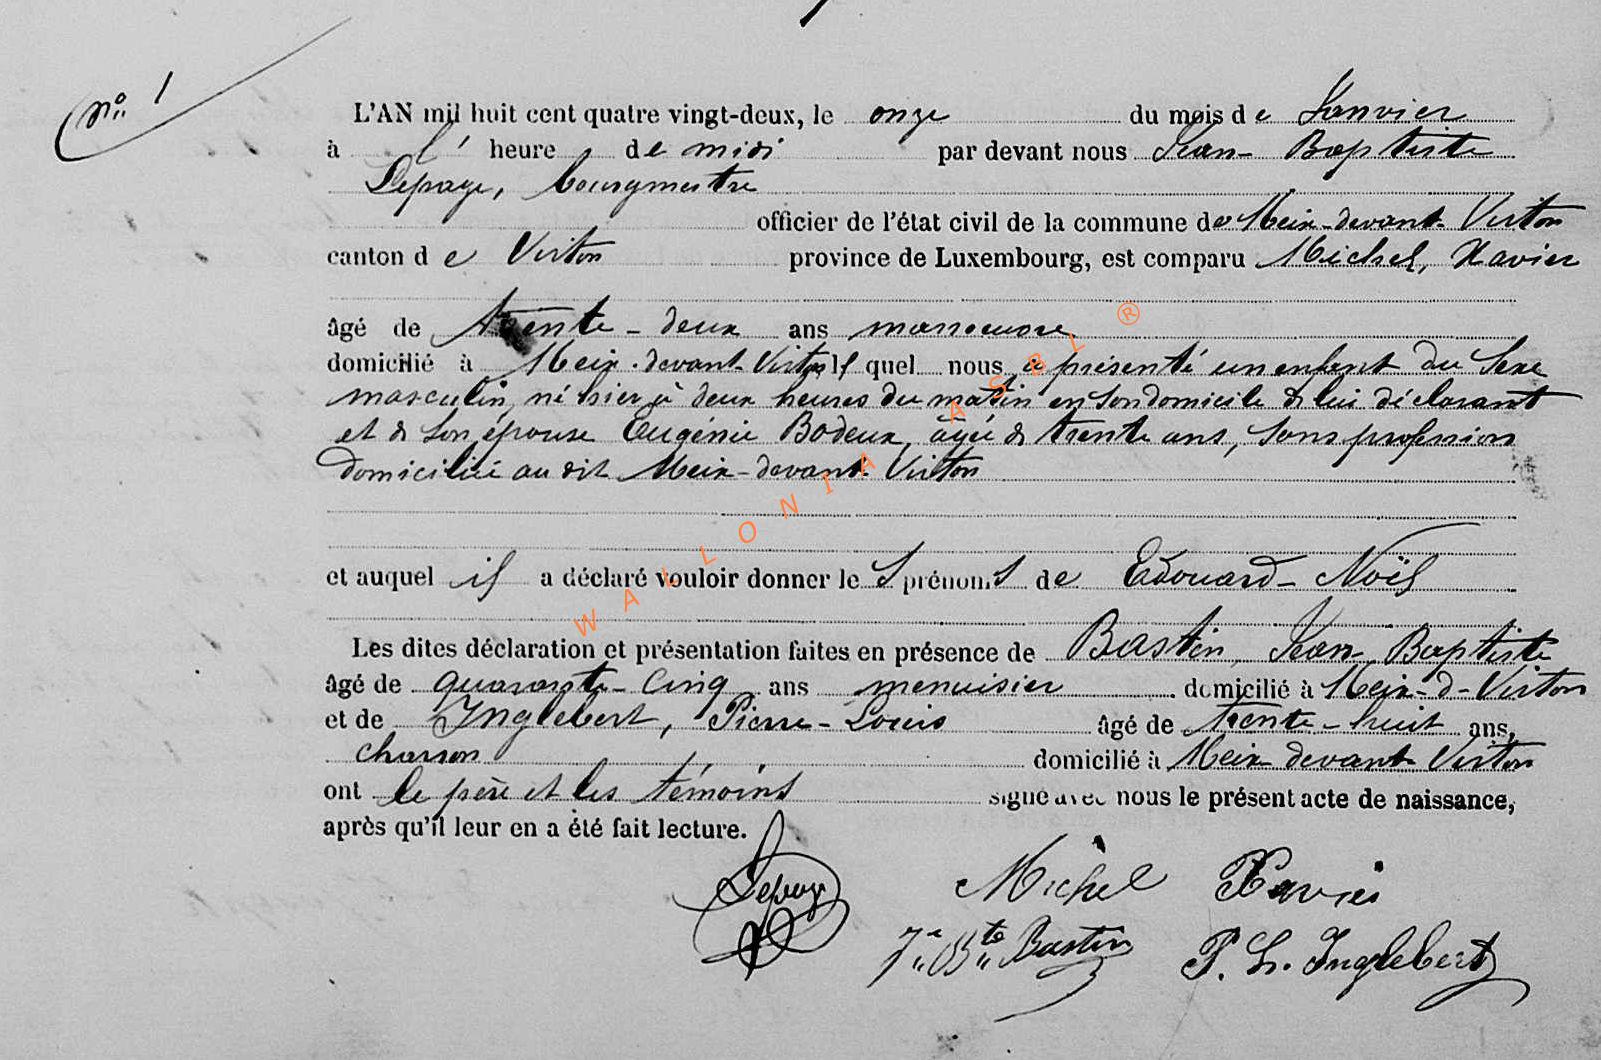 N° 1
L'AN mil huit cent quatre vingt-deux, le onze du mois de Janvier
à l'heure de midi par devant nous Jean-Baptiste
Lepage, bourgmestre
officier de l'état civil de la commune de Meix-devant-Virton
canton de Virton province de Luxembourg, est comparu Michel, Xavier
âgé de trente-deux ans manoeuvre
domicilié à Meix-devant-Virton lequel nous a présenté un enfant du sexe
masculin, né hier à deux heures du matin en son domicile de lui déclarant
et de son épouse Eugénie Bodeux, âgée de trente ans, sans profession
domiciliée au dit Meix-devant-Virton
et auquel il a déclaré vouloir donner les prénoms de Edouard-Noël
Les dites déclaration et présentation faites en présence de Bastin, Jean-Baptiste
âgé de quarante-cinq ans menuisier domicilié à Meix-d-Virton
et de Inglebert, Pierre-Louis âgé de trente-huit ans,
charron domicilié à Meix devant Virton
ont le père et les témoins signé avec nous le présent acte de naissance,
après qu'il leur en a été fait lecture.
Lepage Michel Xavier
Jn Bte Bastin P. L. Inglebert
WALLONIA ASBL ®